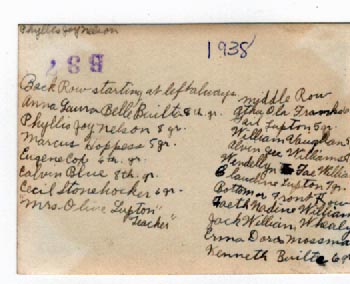 Phyllis Joy Nelson
1938
537
Back Row starting at left always
Anna Laura Belle Builta 8th. gr.
Phyllis Joy Nelson 8 gr.
Marcus Hoppess 5 gr.
Eugene Cof 6th. gr.
Calvin Blue 8th. gr.
Cecil Stonehocker 6 gr.
Mrs. Olive Lupton "Teacher"
middle Row
Ola
Lupton 5 gr.
William Vaughan
Alvin Gee Williams
Wendellyn Fae William
Claudine Lupton 7 gr.
Bottom or Front Row
Faeth Nadine William
Jack William, Whaley
Erma Dora Mossman
Kenneth Builta 6 gr